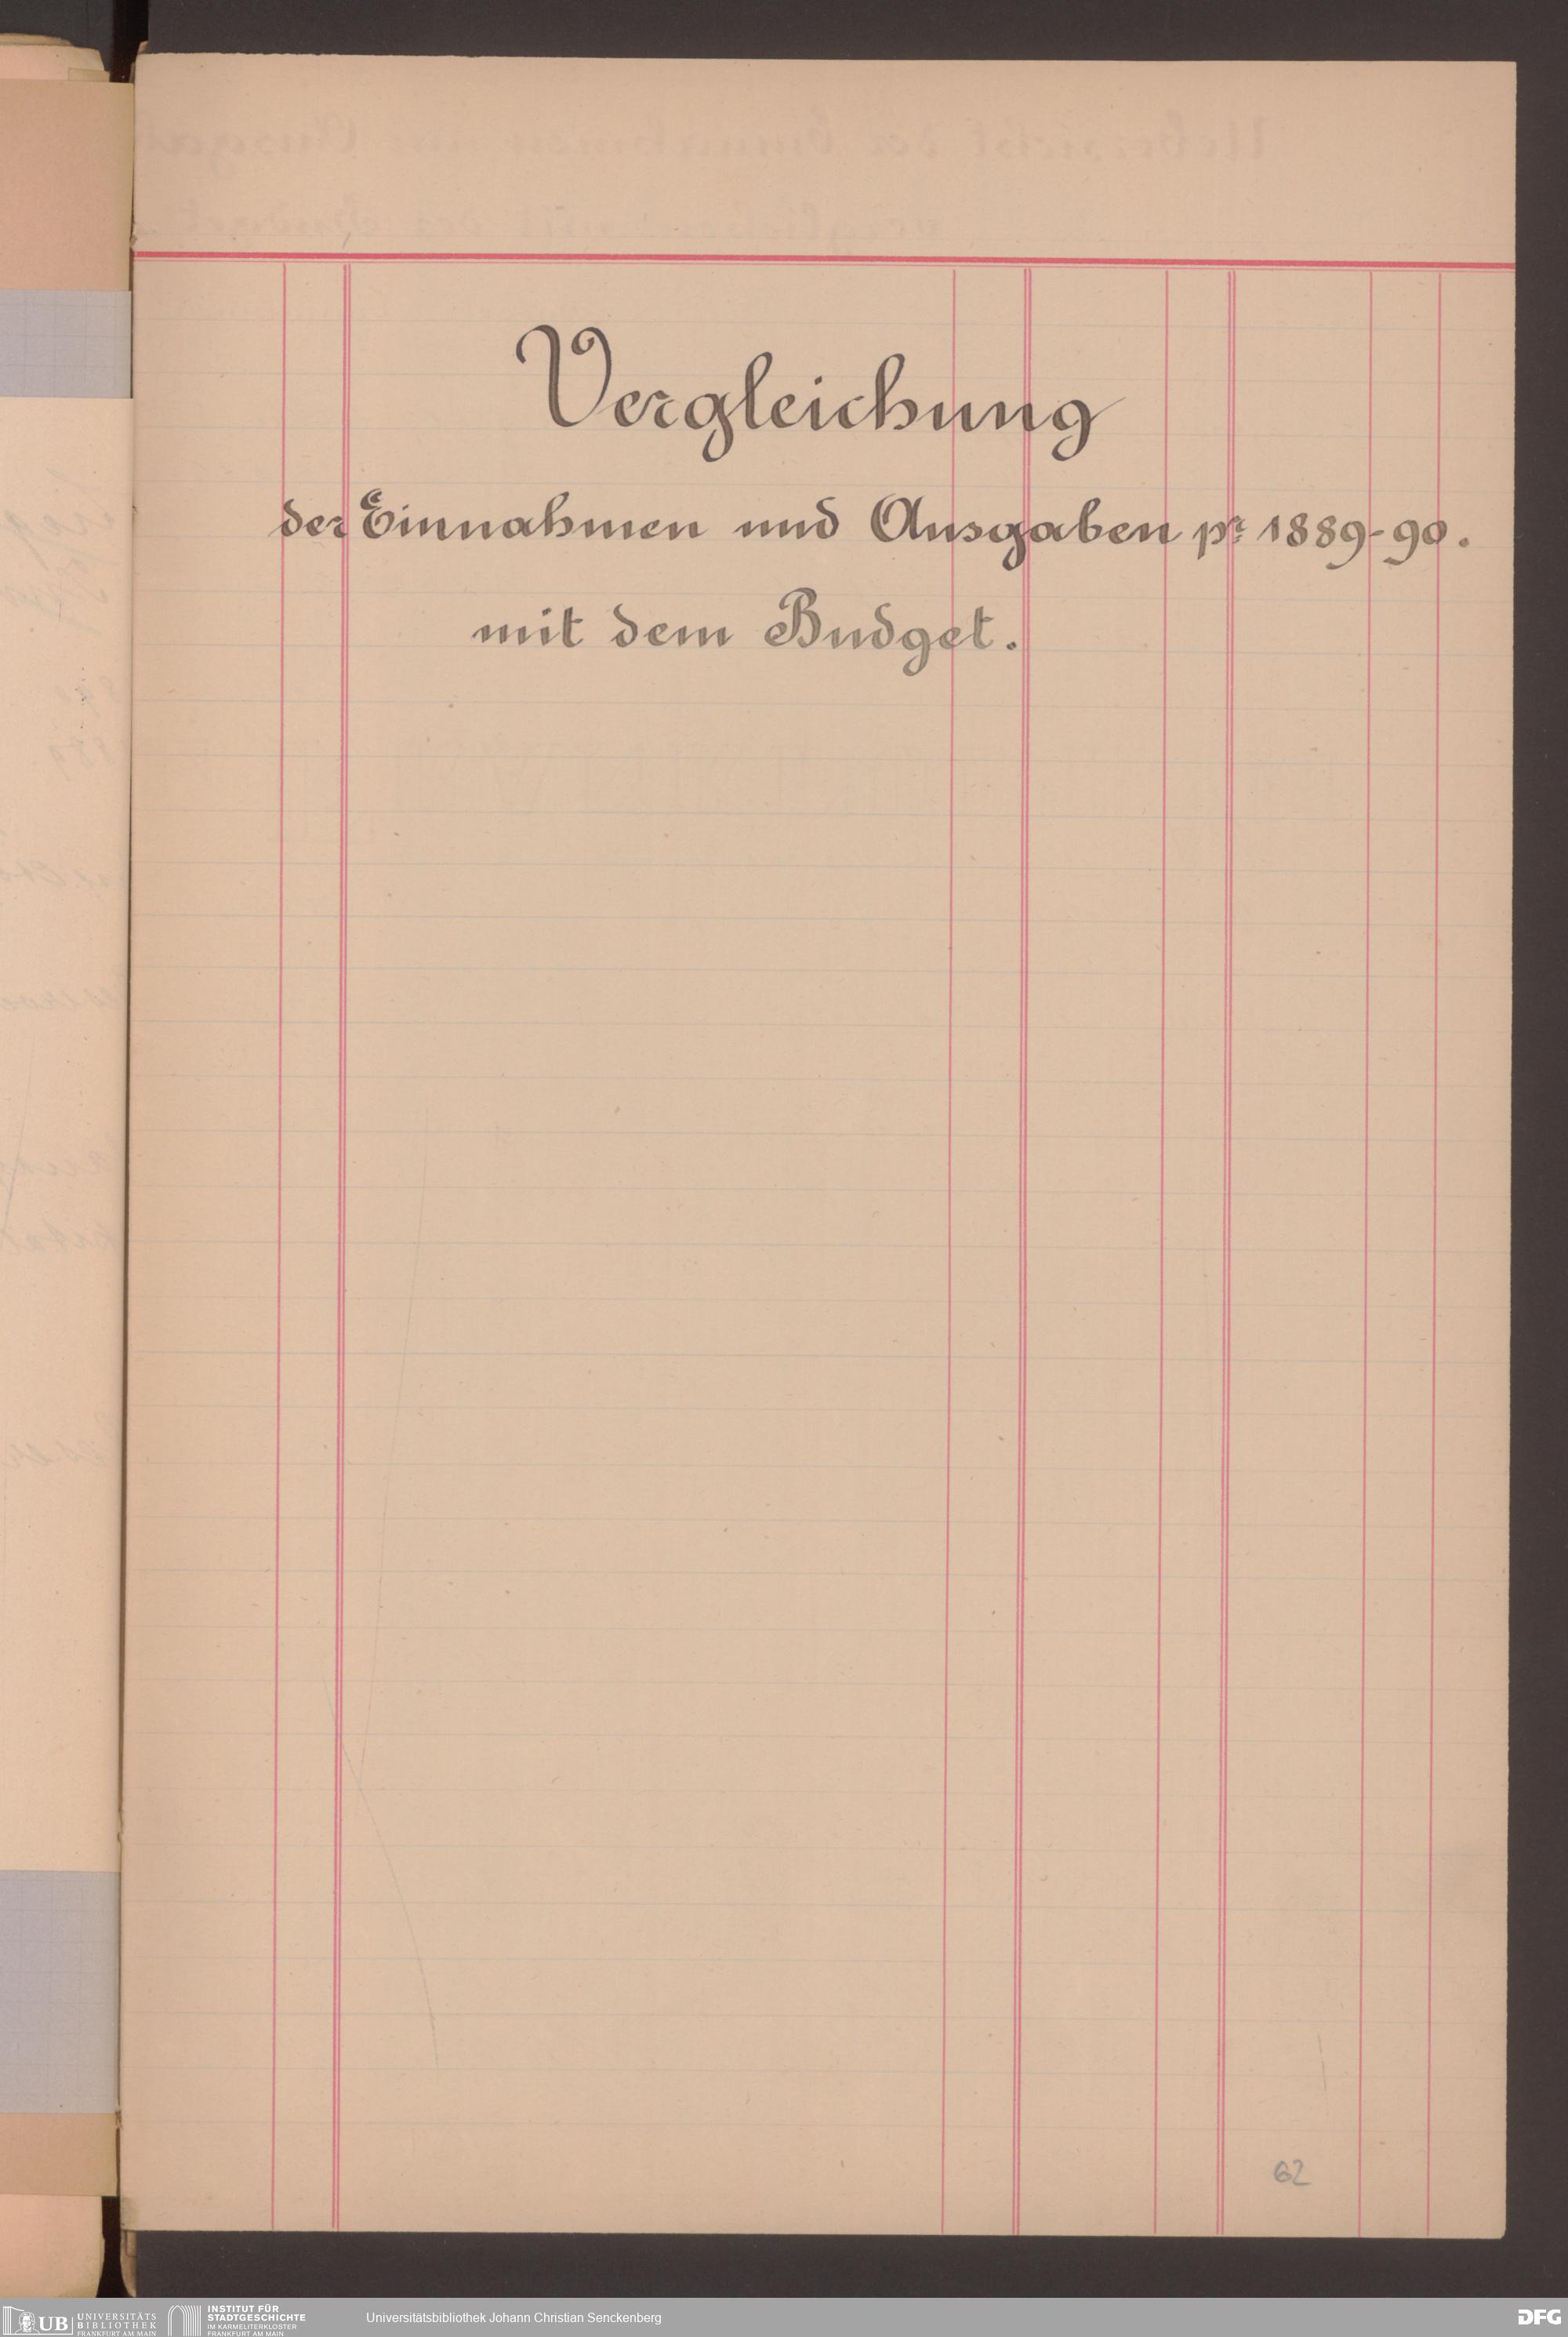 Vergleichung
der Einnahmen und Ausgaben pr. 1889-90.
mit dem Budget.
62
UB UNIVERSITÄTS
BIBLIOTHEK
FRANKFURT AM MAIN
INSTITUT FÜR
STADTGESCHICHTE
IM KARMELITERKLOSTER
FRANKFURT AM MAIN
Universitätsbibliothek Johann Christian Senckenberg
DFG